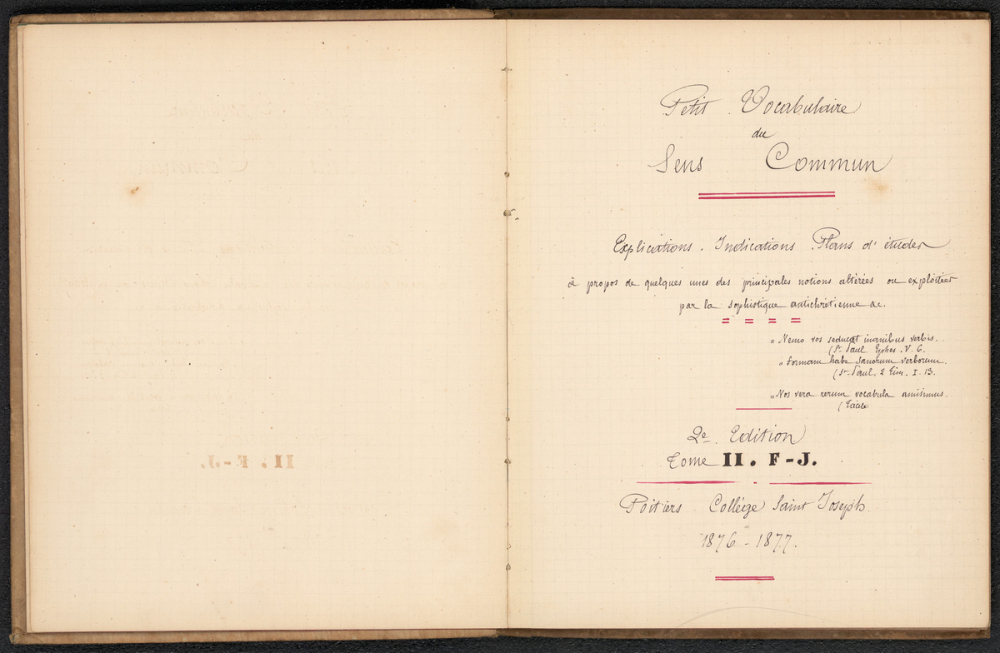 Petit Vocabulaire
du
Sens Commun
Explications. Indications. Plans d'études
à propos de quelques unes des principales notions altérées ou exploitées
par la sophistique antichrétienne &c.
„ Nemo vos seducat inanibus verbis.
(St. Paul Ephes. V. 6.
„ Formam habe sanorum verborum.
(St. Paul. 2 Tim. I. 13.
„ Nos vera rerum vocabula amisimus.
(Tacite
2e. Edition
Tome II. F-J.
Poitiers Collège Saint Joseph.
1876 - 1877.